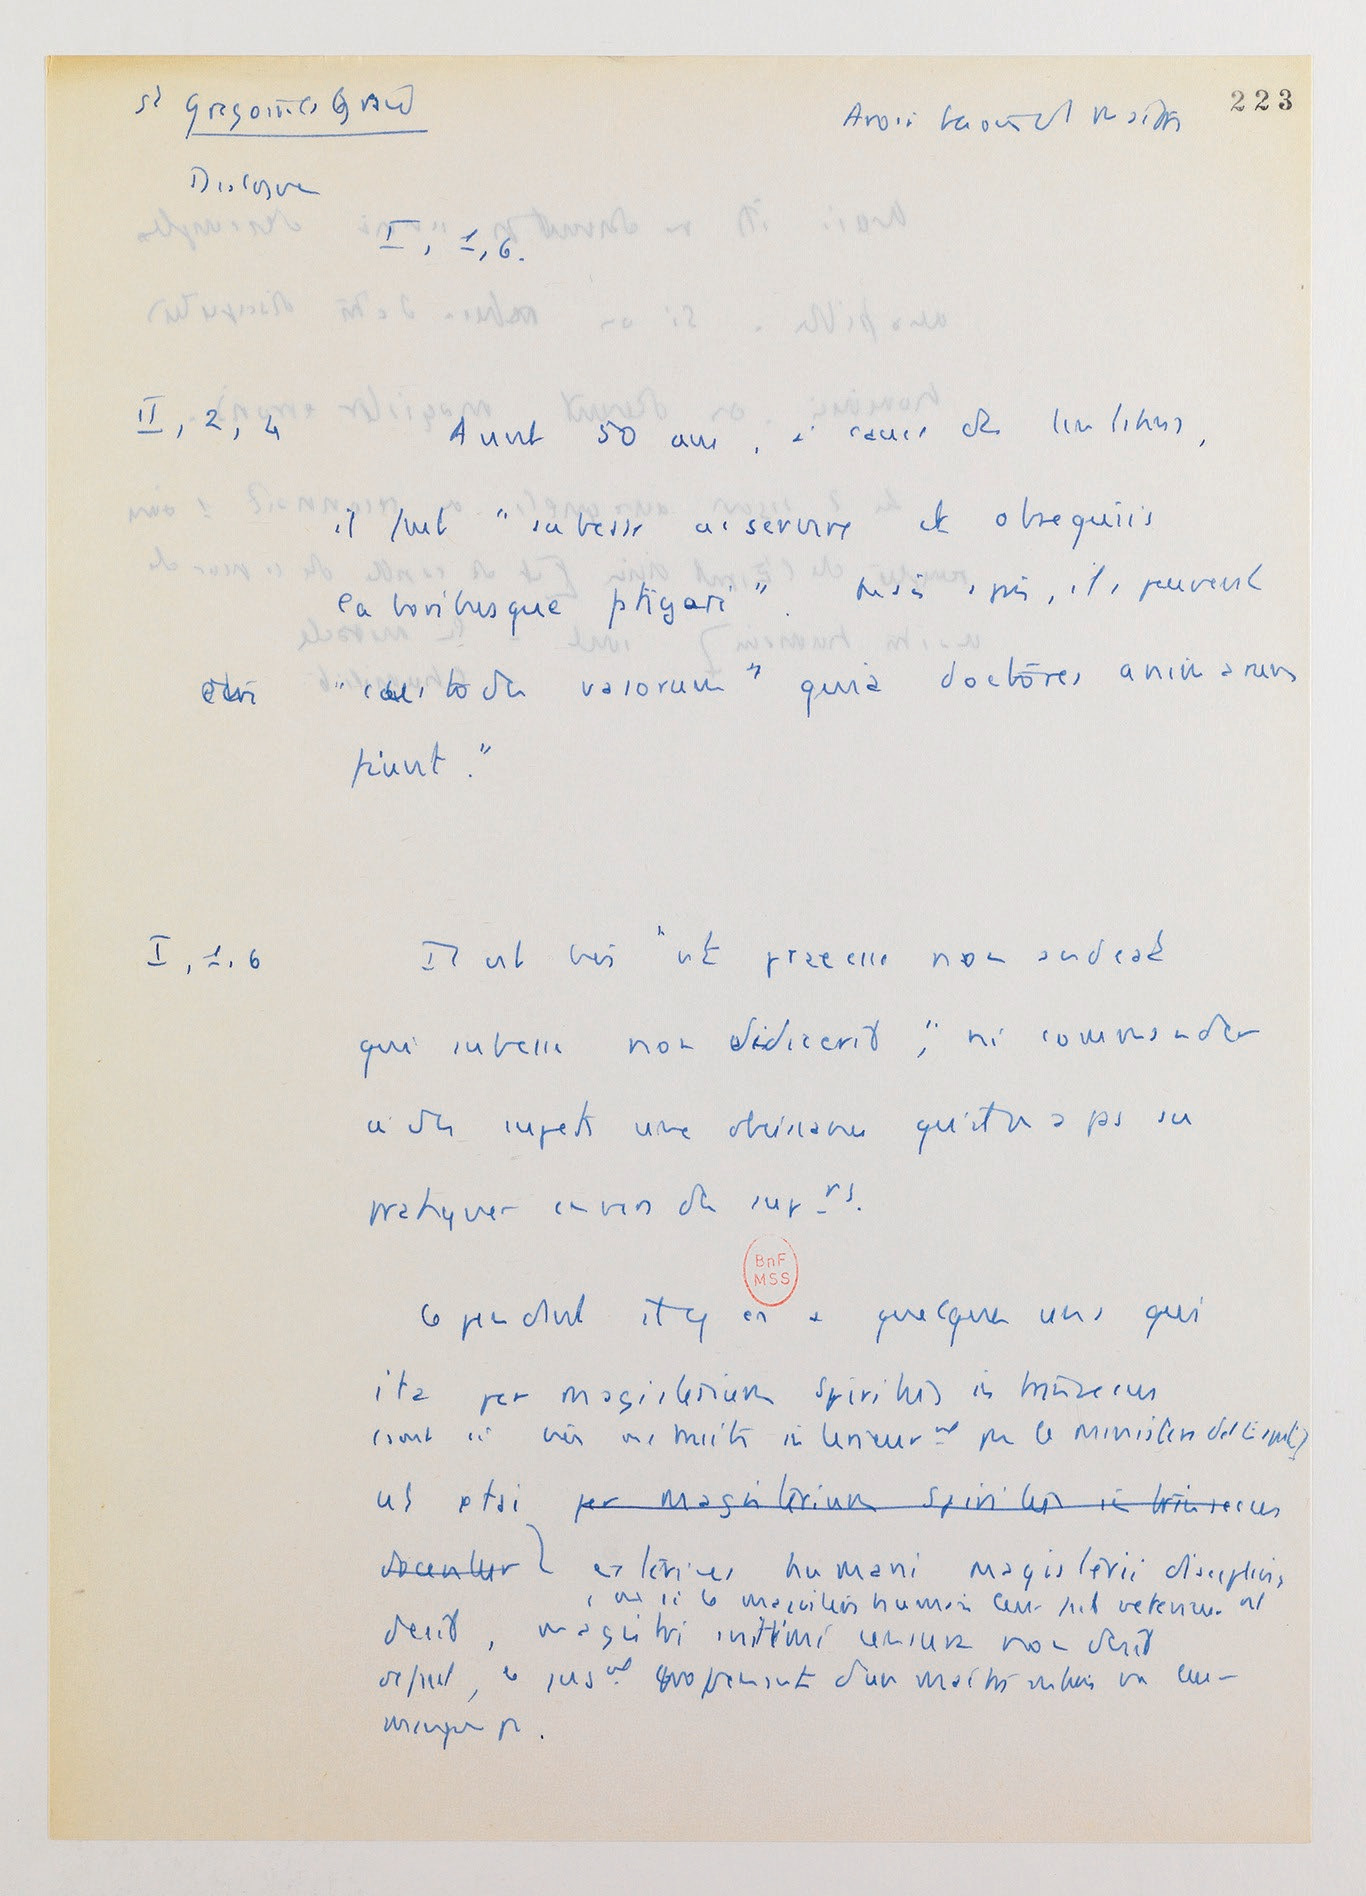 St Grégoire le Grand
Avoir besoin d'un maître
223
Dialogue
I, 1, 6.
II, 2, 4 Avant 50 ans, à cause des tentations,
il faut "subesse ac servire et obsequiis
laboribusque fatigari". Mais après, ils peuvent
être "custodes vasorum" quia doctores animarum
fiunt."
I, 1, 6 Il est bon "ut praeesse non audeat
qui subesse non didicerit", ni commander
à des sujets une obéissance qu'il n'a pas su
pratiquer envers des suprs.
Cependant il y en a quelques uns qui
ita per magisterium Spiritus intrinsecus
sont si bien instruits intérieurnt par le ministère de l'Esprit
ut etsi per magisterium Spiritus intrinsecus
docentur exterius humani magisterii disciplina
si le magistère humain leur fait extérieurnt
desit, magistri intimi censura non desit
défaut, le jugnt d'un maître intérieur ne leur
manque pas.
BnF
MSS